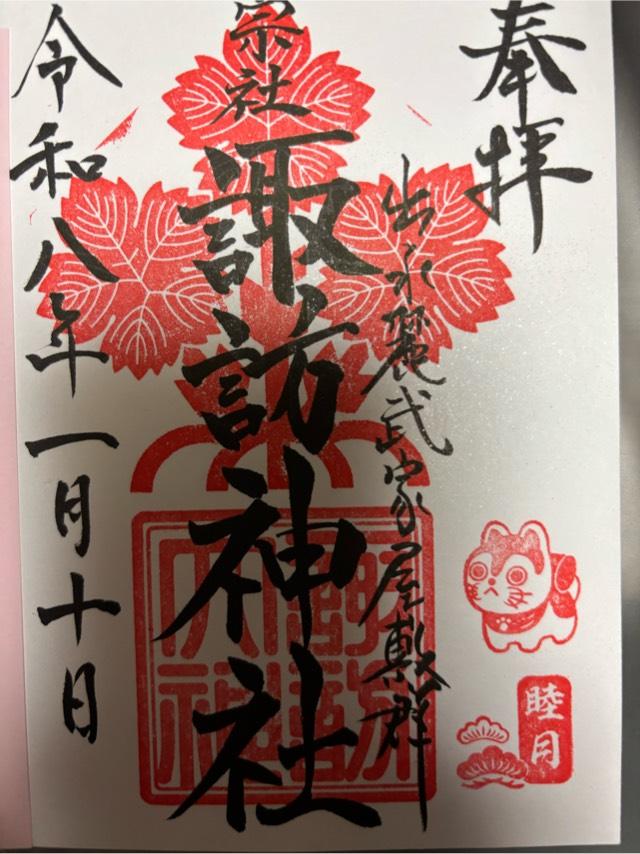 奉拝
出水麓武家屋敷群
宗社
諏訪神社
令和八年一月十日
睦月